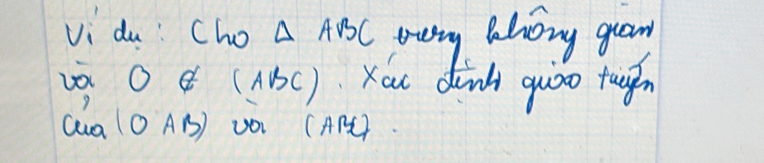 Ví dụ : Cho Δ ABC trong không gian
và O ∉ (ABC). Xác định giao tuyến
của (O AB) với (ABC).